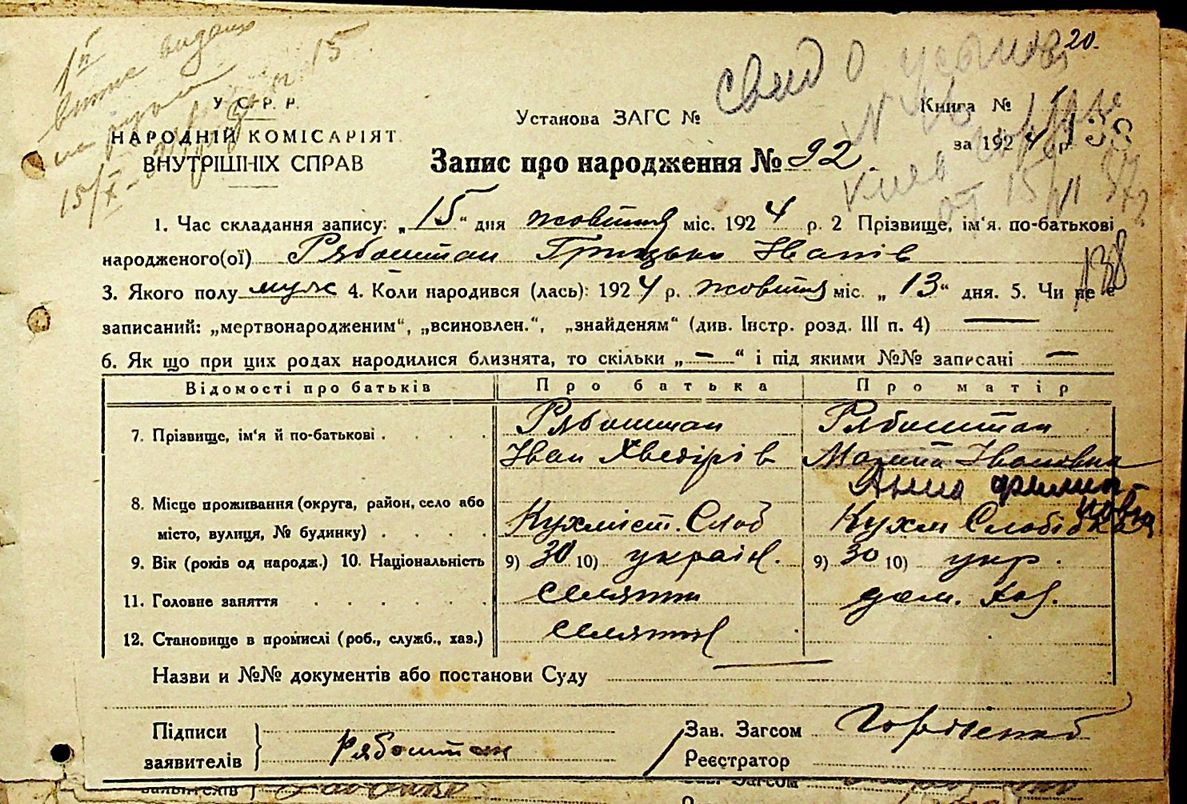 20.
1й
витяг видано
15
15/X
свид о усынов
N
от 15/VI 37 г
138
У.С.Р.Р.
НАРОДНІЙ КОМІСАРІЯТ
ВНУТРІШНІХ СПРАВ
Установа ЗАГС №
Книга №
за 1924 р.
Запис про народження № 92.
1. Час складання запису: „15“ дня жовтня міс. 1924 р. 2 Прізвище, ім'я. по-батькові
народженого(ої) Рябоштан Грицько Іванів
3. Якого полу муж 4. Коли народився (лась): 1924 р. жовтня міс. „13“ дня. 5. Чи не є
записаний: „мертвонародженим“, „всиновлен.“, „знайденям“ (див. Інстр. розд. III п. 4) —
6. Як що при цих родах народилися близнята, то скільки „—“ і під якими №№ записані —
Відомості про батьків Про батька Про матір
7. Прізвище, ім'я й по-батькові Рябоштан Рябоштан
Іван Хведірів Марина Івановна
Анна Филиповна
8. Місце проживання (округа, район, село або
місто, вулиця, № будинку) Кухміст. Слоб Кухм Слобідка
9. Вік (років од народж.) 10. Національність 9) 30 10) україн. 9) 30 10) укр.
11. Головне заняття селянин дом. хаз.
12. Становище в промислі (роб., служб., хаз.) селянин
Назви и №№ документів або постанови Суду
Підписи
заявителів } Рябоштан
Зав. Загсом Гордієнко
Реєстратор